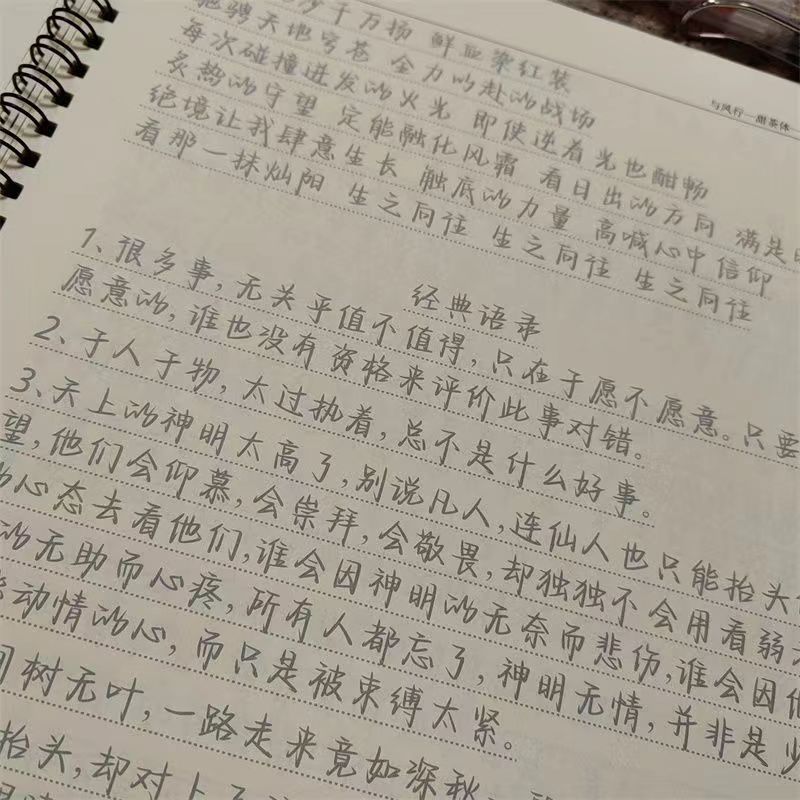 与风行—甜茶体
沙千万扬 鲜血染红装
驰骋天地穹苍 全力以赴的战场
每次碰撞迸发的火光 即使逆着光也酣畅
炙热的守望 定能融化风霜 看日出的方向 满是
绝境让我肆意生长 触底的力量 高喊心中信仰
看那一抹灿阳 生之向往 生之向往 生之向往
经典语录
1、很多事,无关乎值不值得,只在于愿不愿意。只要
愿意的,谁也没有资格来评价此事对错。
2、于人于物,太过执着,总不是什么好事。
3、天上的神明太高了,别说凡人,连仙人也只能抬头
望,他们会仰慕,会崇拜,会敬畏,却独独不会用看弱
心态去看他们,谁会因神明的无奈而悲伤,谁会因他
的无助而心疼,所有人都忘了,神明无情,并非是少
动情的心,而只是被束缚太紧。
树无叶,一路走来竟如深秋
抬头,却对上了